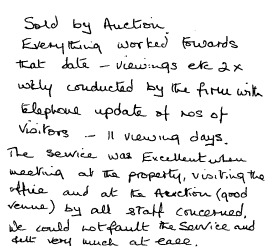 Sold by Auction.
Everything worked towards
that date - viewings etc 2x
wkly conducted by the firm with
telephone update of nos of
visitors - 11 viewing days.
The service was Excellent when
meeting at the property, visiting the
office and at the Auction (good
venue) by all staff concerned.
We could not fault the service and
felt very much at ease.